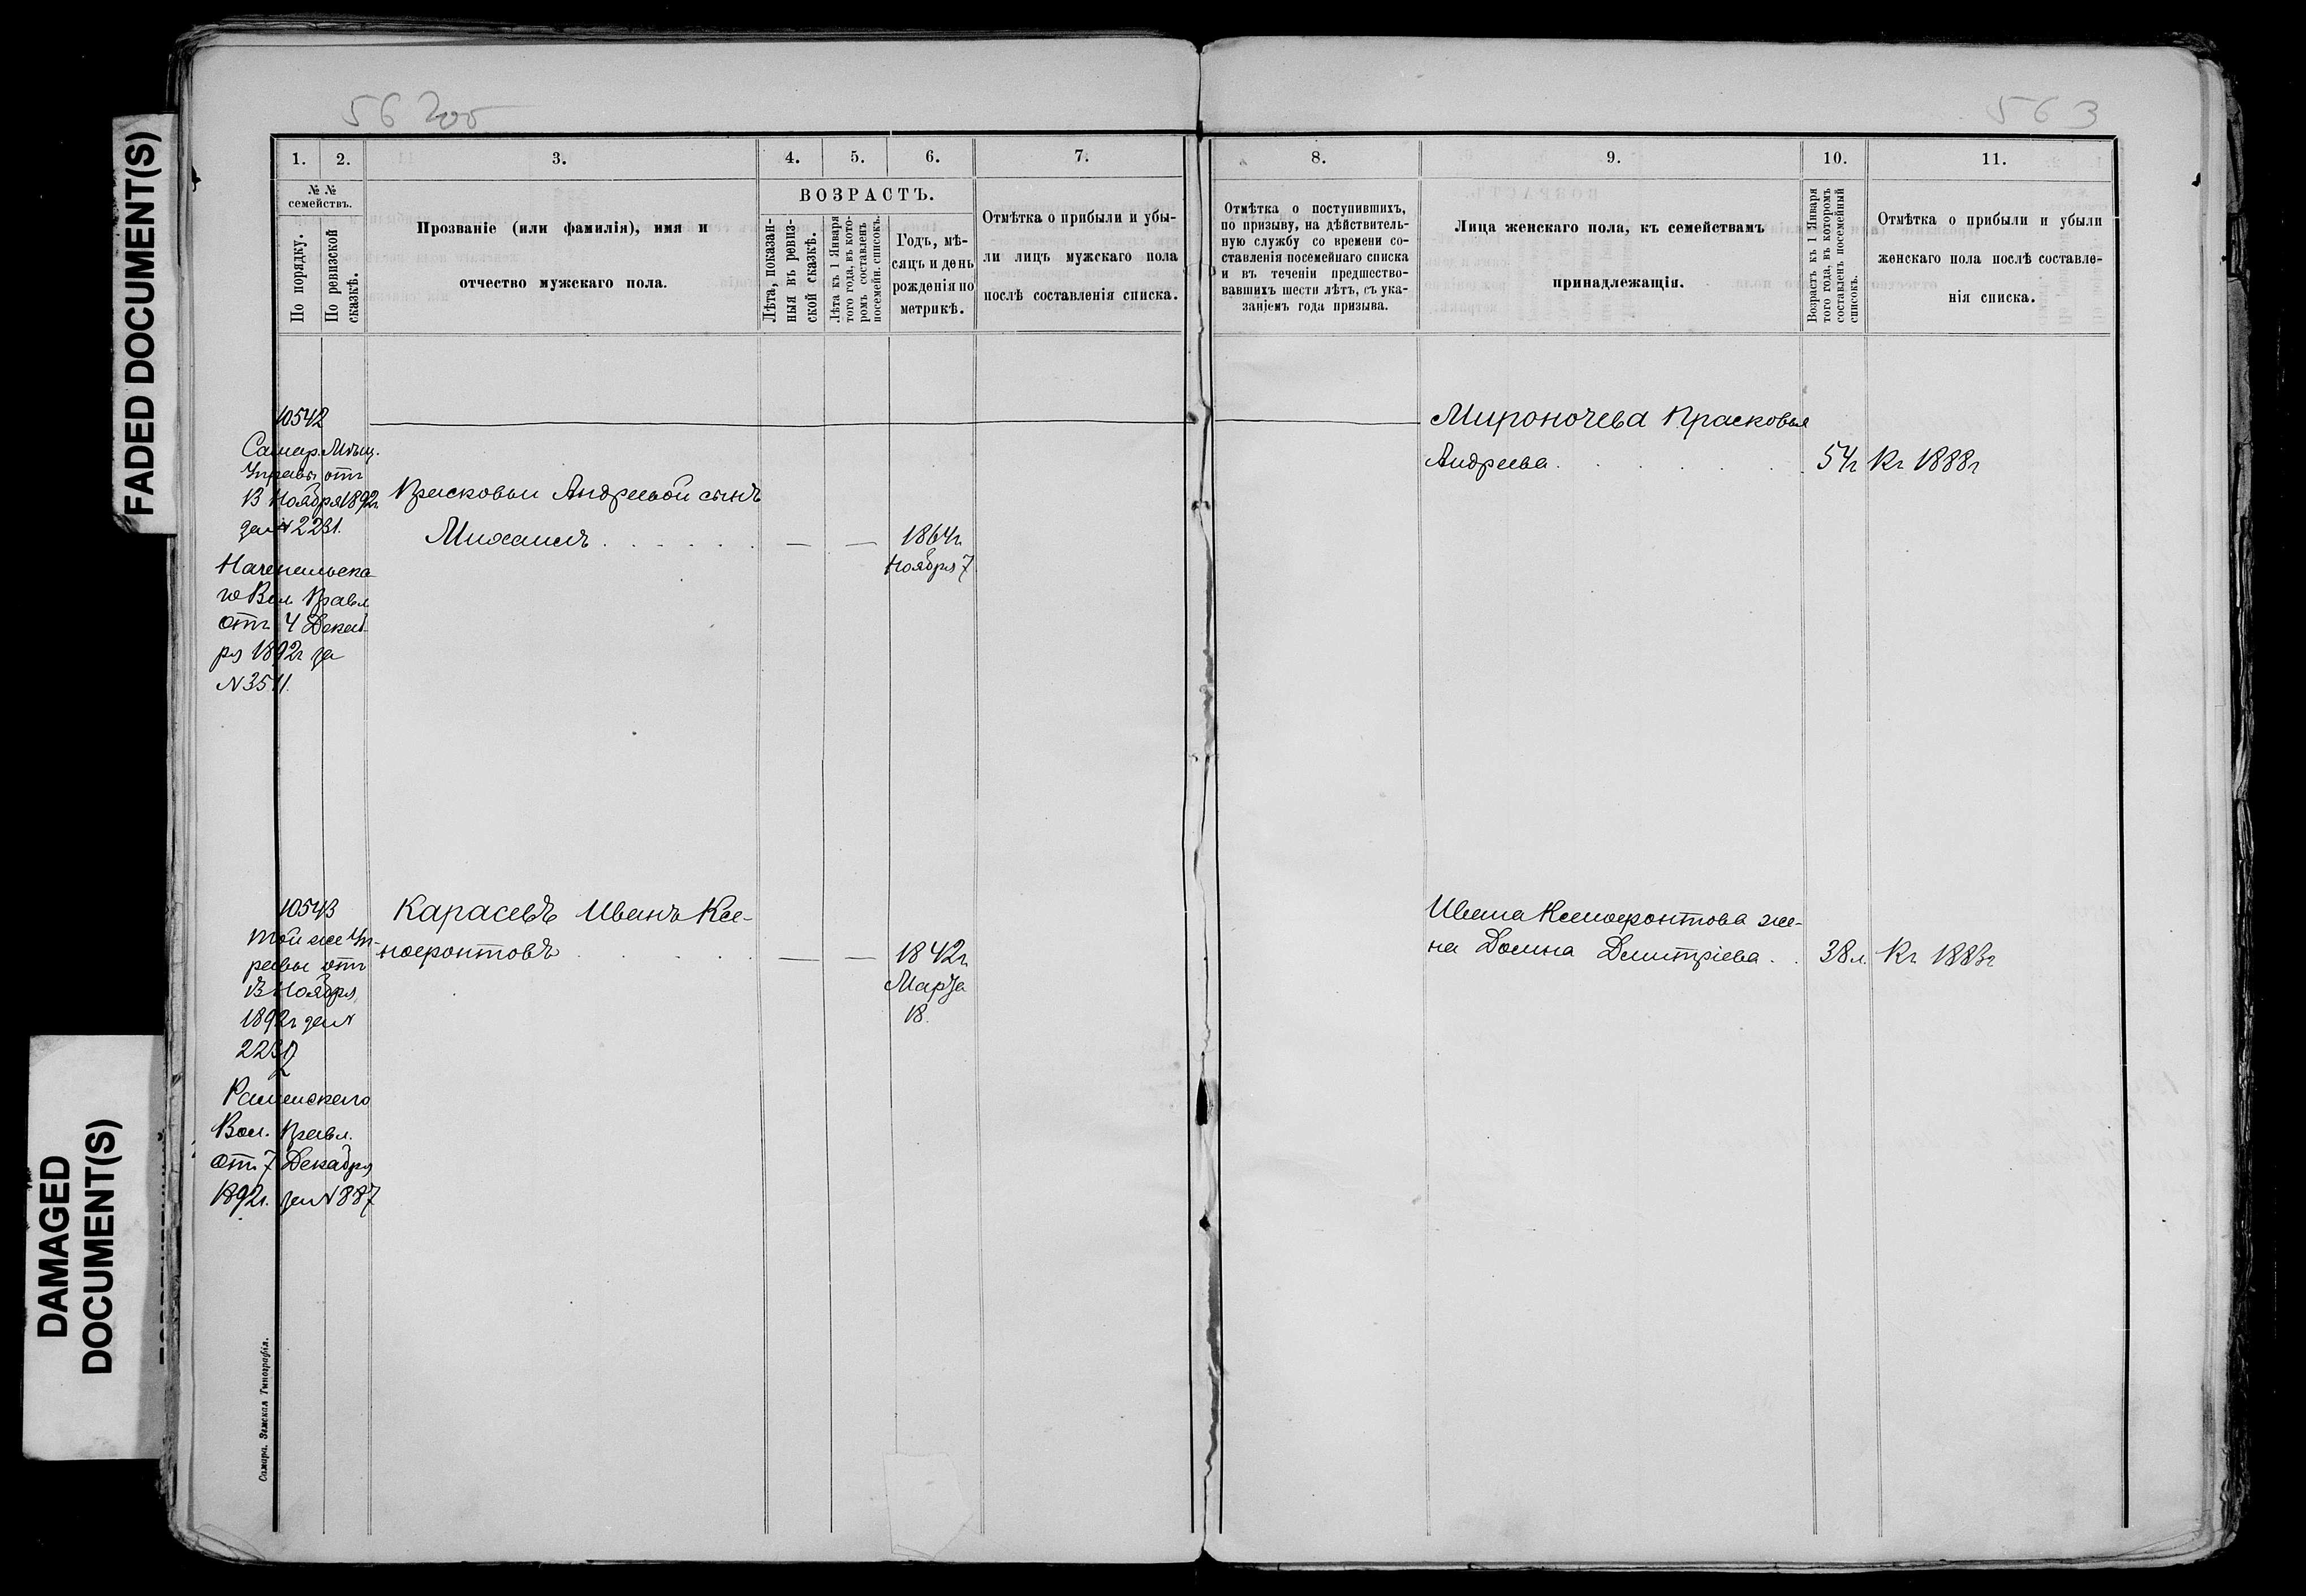 FADED DOCUMENT(S)
DAMAGED
DOCUMENT(S)
56 2об
1. 2. 3. 4. 5. 6. 7.
№ №
семействъ.
По порядку.
По ревизской
сказкѣ.
Прозваніе (или фамилія), имя и
отчество мужскаго пола.
ВОЗРАСТЪ.
Лѣта, показан-
ныя въ ревиз-
ской сказкѣ.
Лѣта къ 1 Января
того года, въ кото-
ромъ составленъ
посемейн. списокъ.
Годъ, мѣ-
сяцъ и день
рожденія по
метрикѣ.
Отмѣтка о прибыли и убы-
ли лицъ мужскаго пола
послѣ составленія списка.
10542
Самар. Мѣщ.
Управы отъ
13 Ноября 1892г.
за N 2231.
го Вол. Правл.
отъ 4 Декаб-
ря 1892г за
N 3511.
Прасковьи Андреевой сынъ
Михаилъ
1864г
Ноября 7
10543
Той же Уп-
равы отъ
13 Ноября
1892г за N
Вол. Правл.
отъ 7 Декабря
1892г. за N 887
Карасевъ Иванъ Ксе-
нофонтовъ
1842г
Марта
18.
Самара. Земская Типографія.
563
8. 9. 10. 11.
Отмѣтка о поступившихъ,
по призыву, на дѣйствитель-
ную службу со времени со-
ставленія посемейнаго списка
и въ теченіи предшество-
вавшихъ шести лѣтъ, съ ука-
заніемъ года призыва.
Лица женскаго пола, къ семействамъ
принадлежащія.
Возрастъ къ 1 Января
того года, въ которомъ
составленъ посемейный
списокъ.
Отмѣтка о прибыли и убыли
женскаго пола послѣ составле-
нія списка.
Мироночева Прасковья
Андреева 54г Къ 1888г
Ивана Ксенофонтова же-
на Домна Дмитріева 38л. Къ 1883г